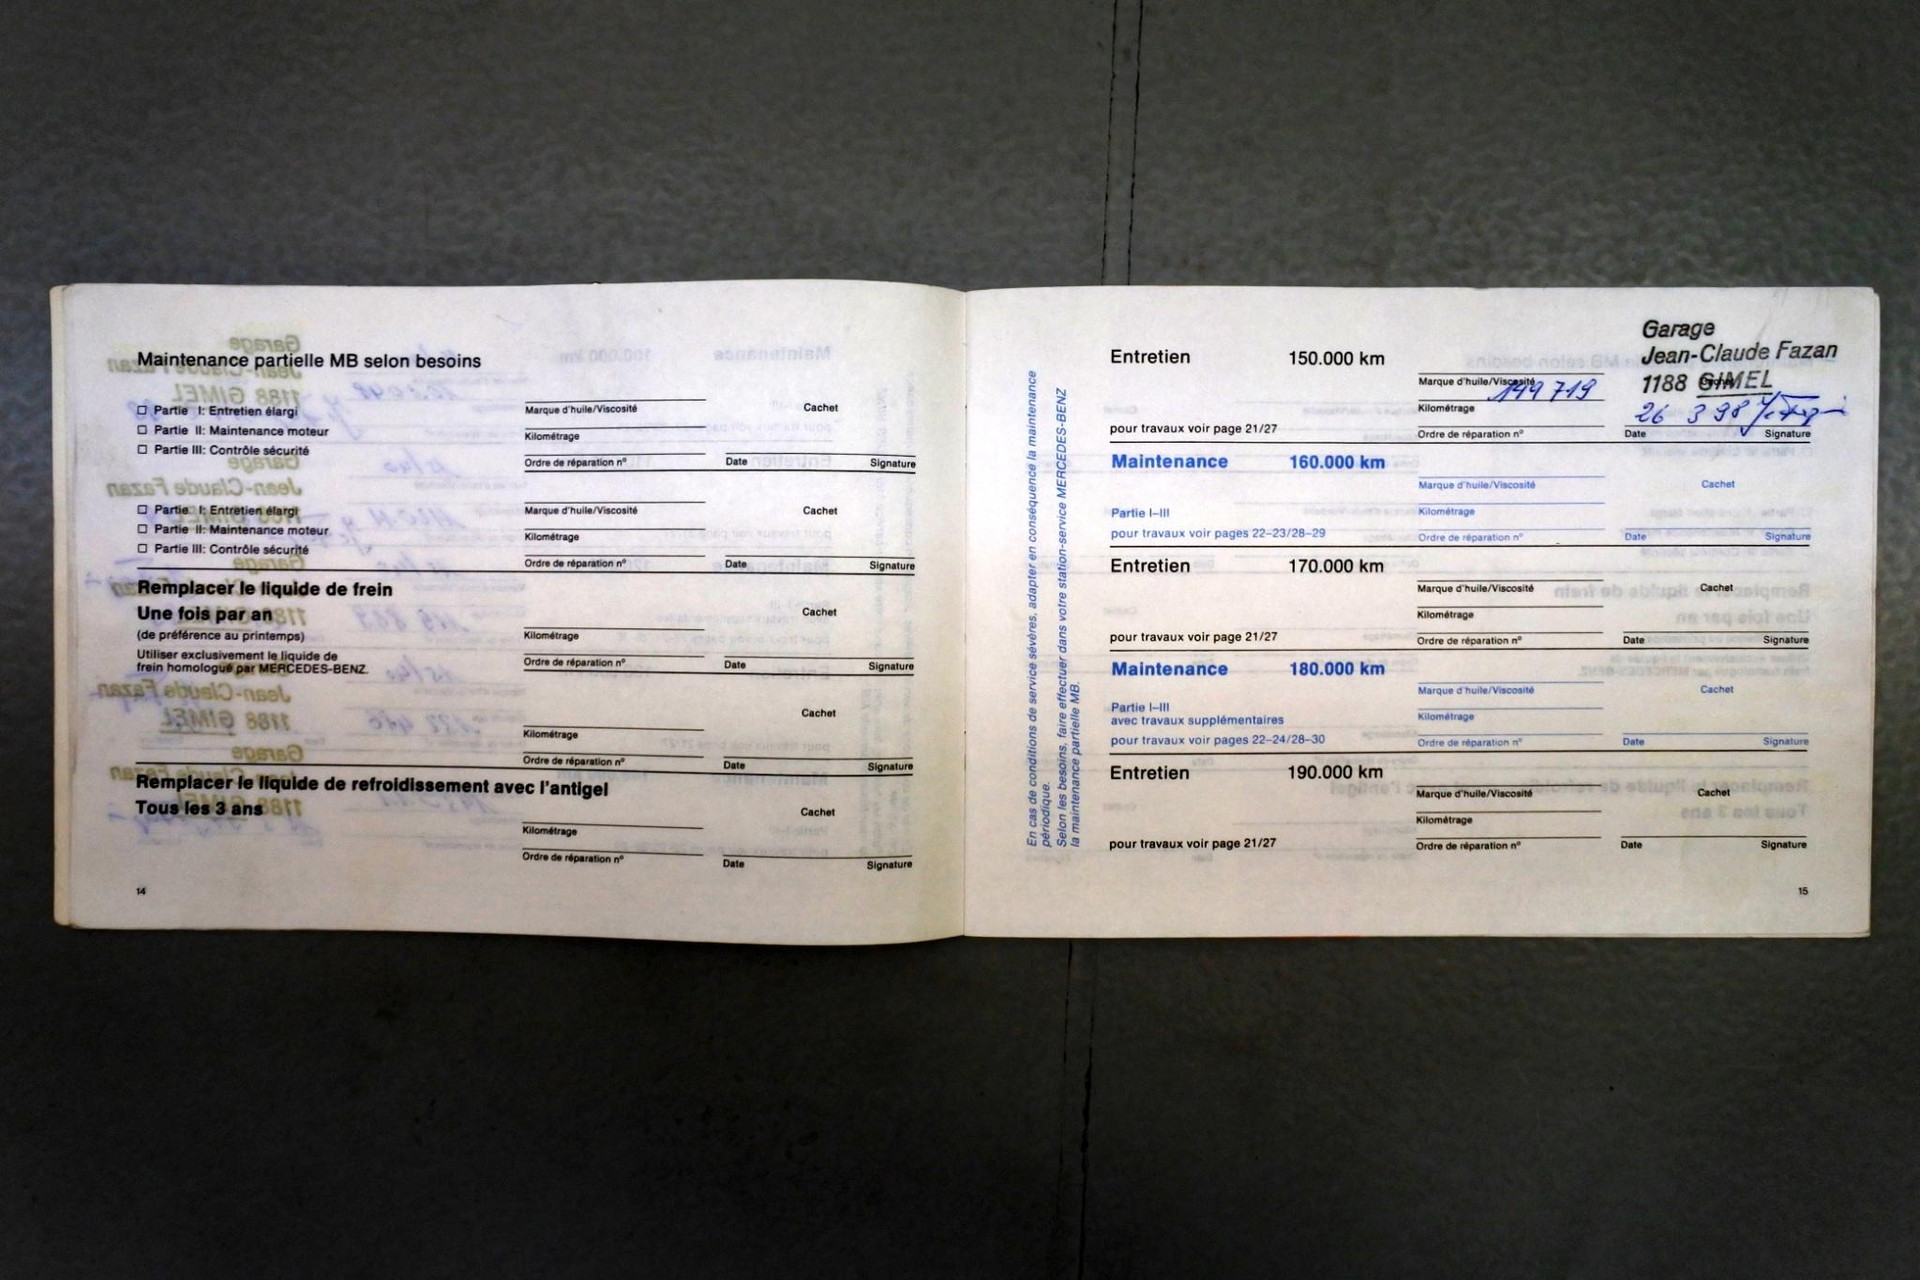 Maintenance partielle MB selon besoins
☐ Partie I: Entretien élargi
☐ Partie II: Maintenance moteur
☐ Partie III: Contrôle sécurité
Marque d'huile/Viscosité
Cachet
Kilométrage
Ordre de réparation nº
Date
Signature
☐ Partie I: Entretien élargi
☐ Partie II: Maintenance moteur
☐ Partie III: Contrôle sécurité
Marque d'huile/Viscosité
Cachet
Kilométrage
Ordre de réparation nº
Date
Signature
Remplacer le liquide de frein
Une fois par an
(de préférence au printemps)
Utiliser exclusivement le liquide de
frein homologué par MERCEDES-BENZ.
Cachet
Kilométrage
Ordre de réparation nº
Date
Signature
Cachet
Kilométrage
Ordre de réparation nº
Date
Signature
Remplacer le liquide de refroidissement avec l'antigel
Tous les 3 ans
Cachet
Kilométrage
Ordre de réparation nº
Date
Signature
14
En cas de conditions de service sévères, adapter en conséquence la maintenance
périodique.
Selon les besoins, faire effectuer dans votre station-service MERCEDES-BENZ
la maintenance partielle MB.
Entretien 150.000 km
pour travaux voir page 21/27
Marque d'huile/Viscosité
149 719
Kilométrage
Ordre de réparation nº
Garage
Jean-Claude Fazan
1188 GIMEL
26 3 98
Date
Signature
Maintenance 160.000 km
Partie I–III
pour travaux voir pages 22–23/28–29
Marque d'huile/Viscosité
Cachet
Kilométrage
Ordre de réparation nº
Date
Signature
Entretien 170.000 km
pour travaux voir page 21/27
Marque d'huile/Viscosité
Cachet
Kilométrage
Ordre de réparation nº
Date
Signature
Maintenance 180.000 km
Partie I–III
avec travaux supplémentaires
pour travaux voir pages 22–24/28–30
Marque d'huile/Viscosité
Cachet
Kilométrage
Ordre de réparation nº
Date
Signature
Entretien 190.000 km
pour travaux voir page 21/27
Marque d'huile/Viscosité
Cachet
Kilométrage
Ordre de réparation nº
Date
Signature
15